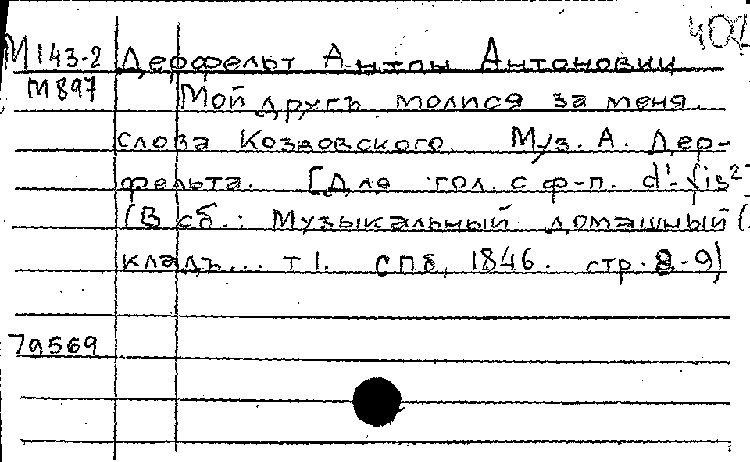 М 143-2 Дерфельт Антон Антонович
М 897 Мой другъ молися за меня.
слова Козловского. Муз. А. Дер-
фельта. [Для гол. с ф-п. d¹-fis²]
(В сб.: Музыкальный домашный
кладъ... т 1. СПб, 1846. стр. 8-9)
7а569